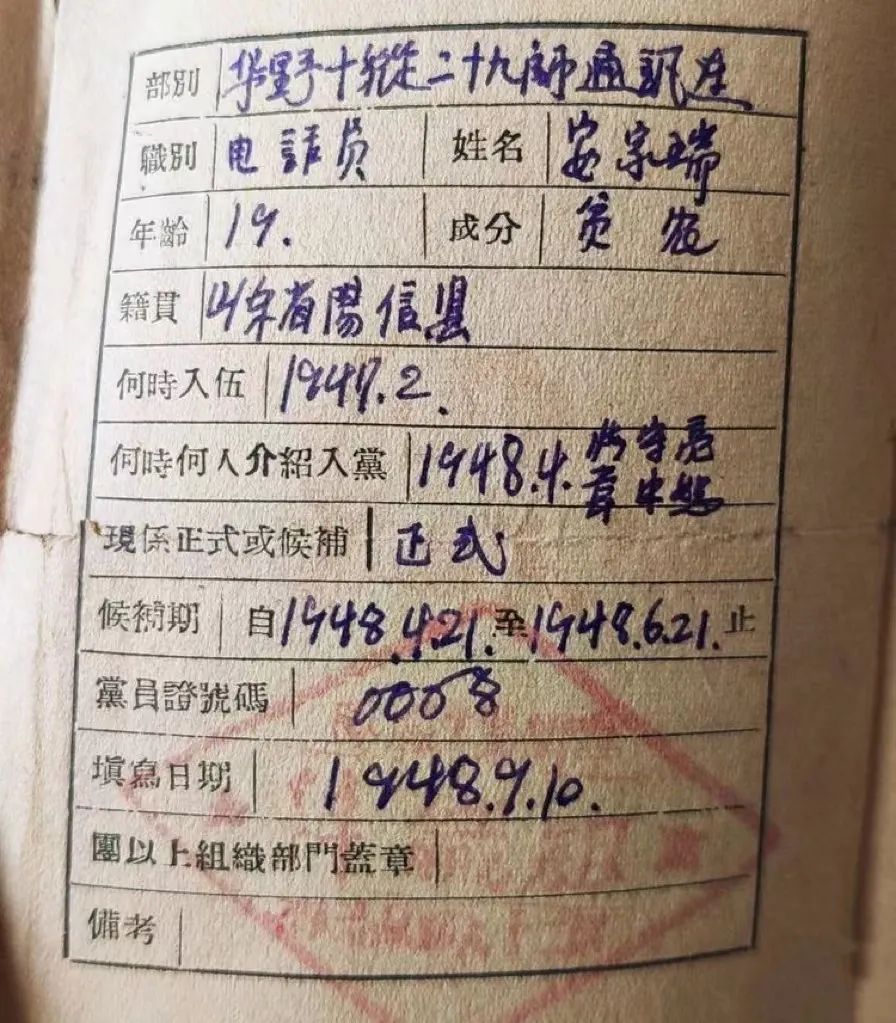 部別 华野十縱二十九師通訊连
職別 电話员 姓名 安宗瑞
年齡 19. 成分 贫农
籍貫 山东省陽信縣
何時入伍 1947.2.
何時何人介紹入黨 1948.4.
現係正式或候補 正式
候補期 自1948.4.21.至1948.6.21.止
黨員證號碼 0008
填寫日期 1948.9.10.
團以上組織部門蓋章
備考